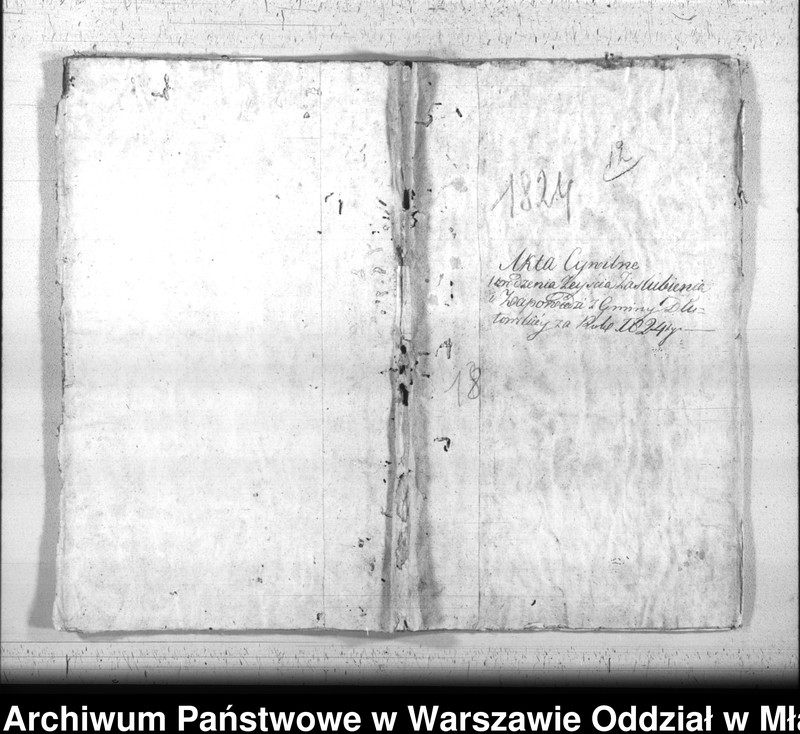 12
1824
Akta Cywilne
Urodzenia Zeyscia Zaslubienia
i Zapowiedzi z Gminy Dłu-
towskiey za Rok 1824 g
18
Archiwum Państwowe w Warszawie Oddział w Mła